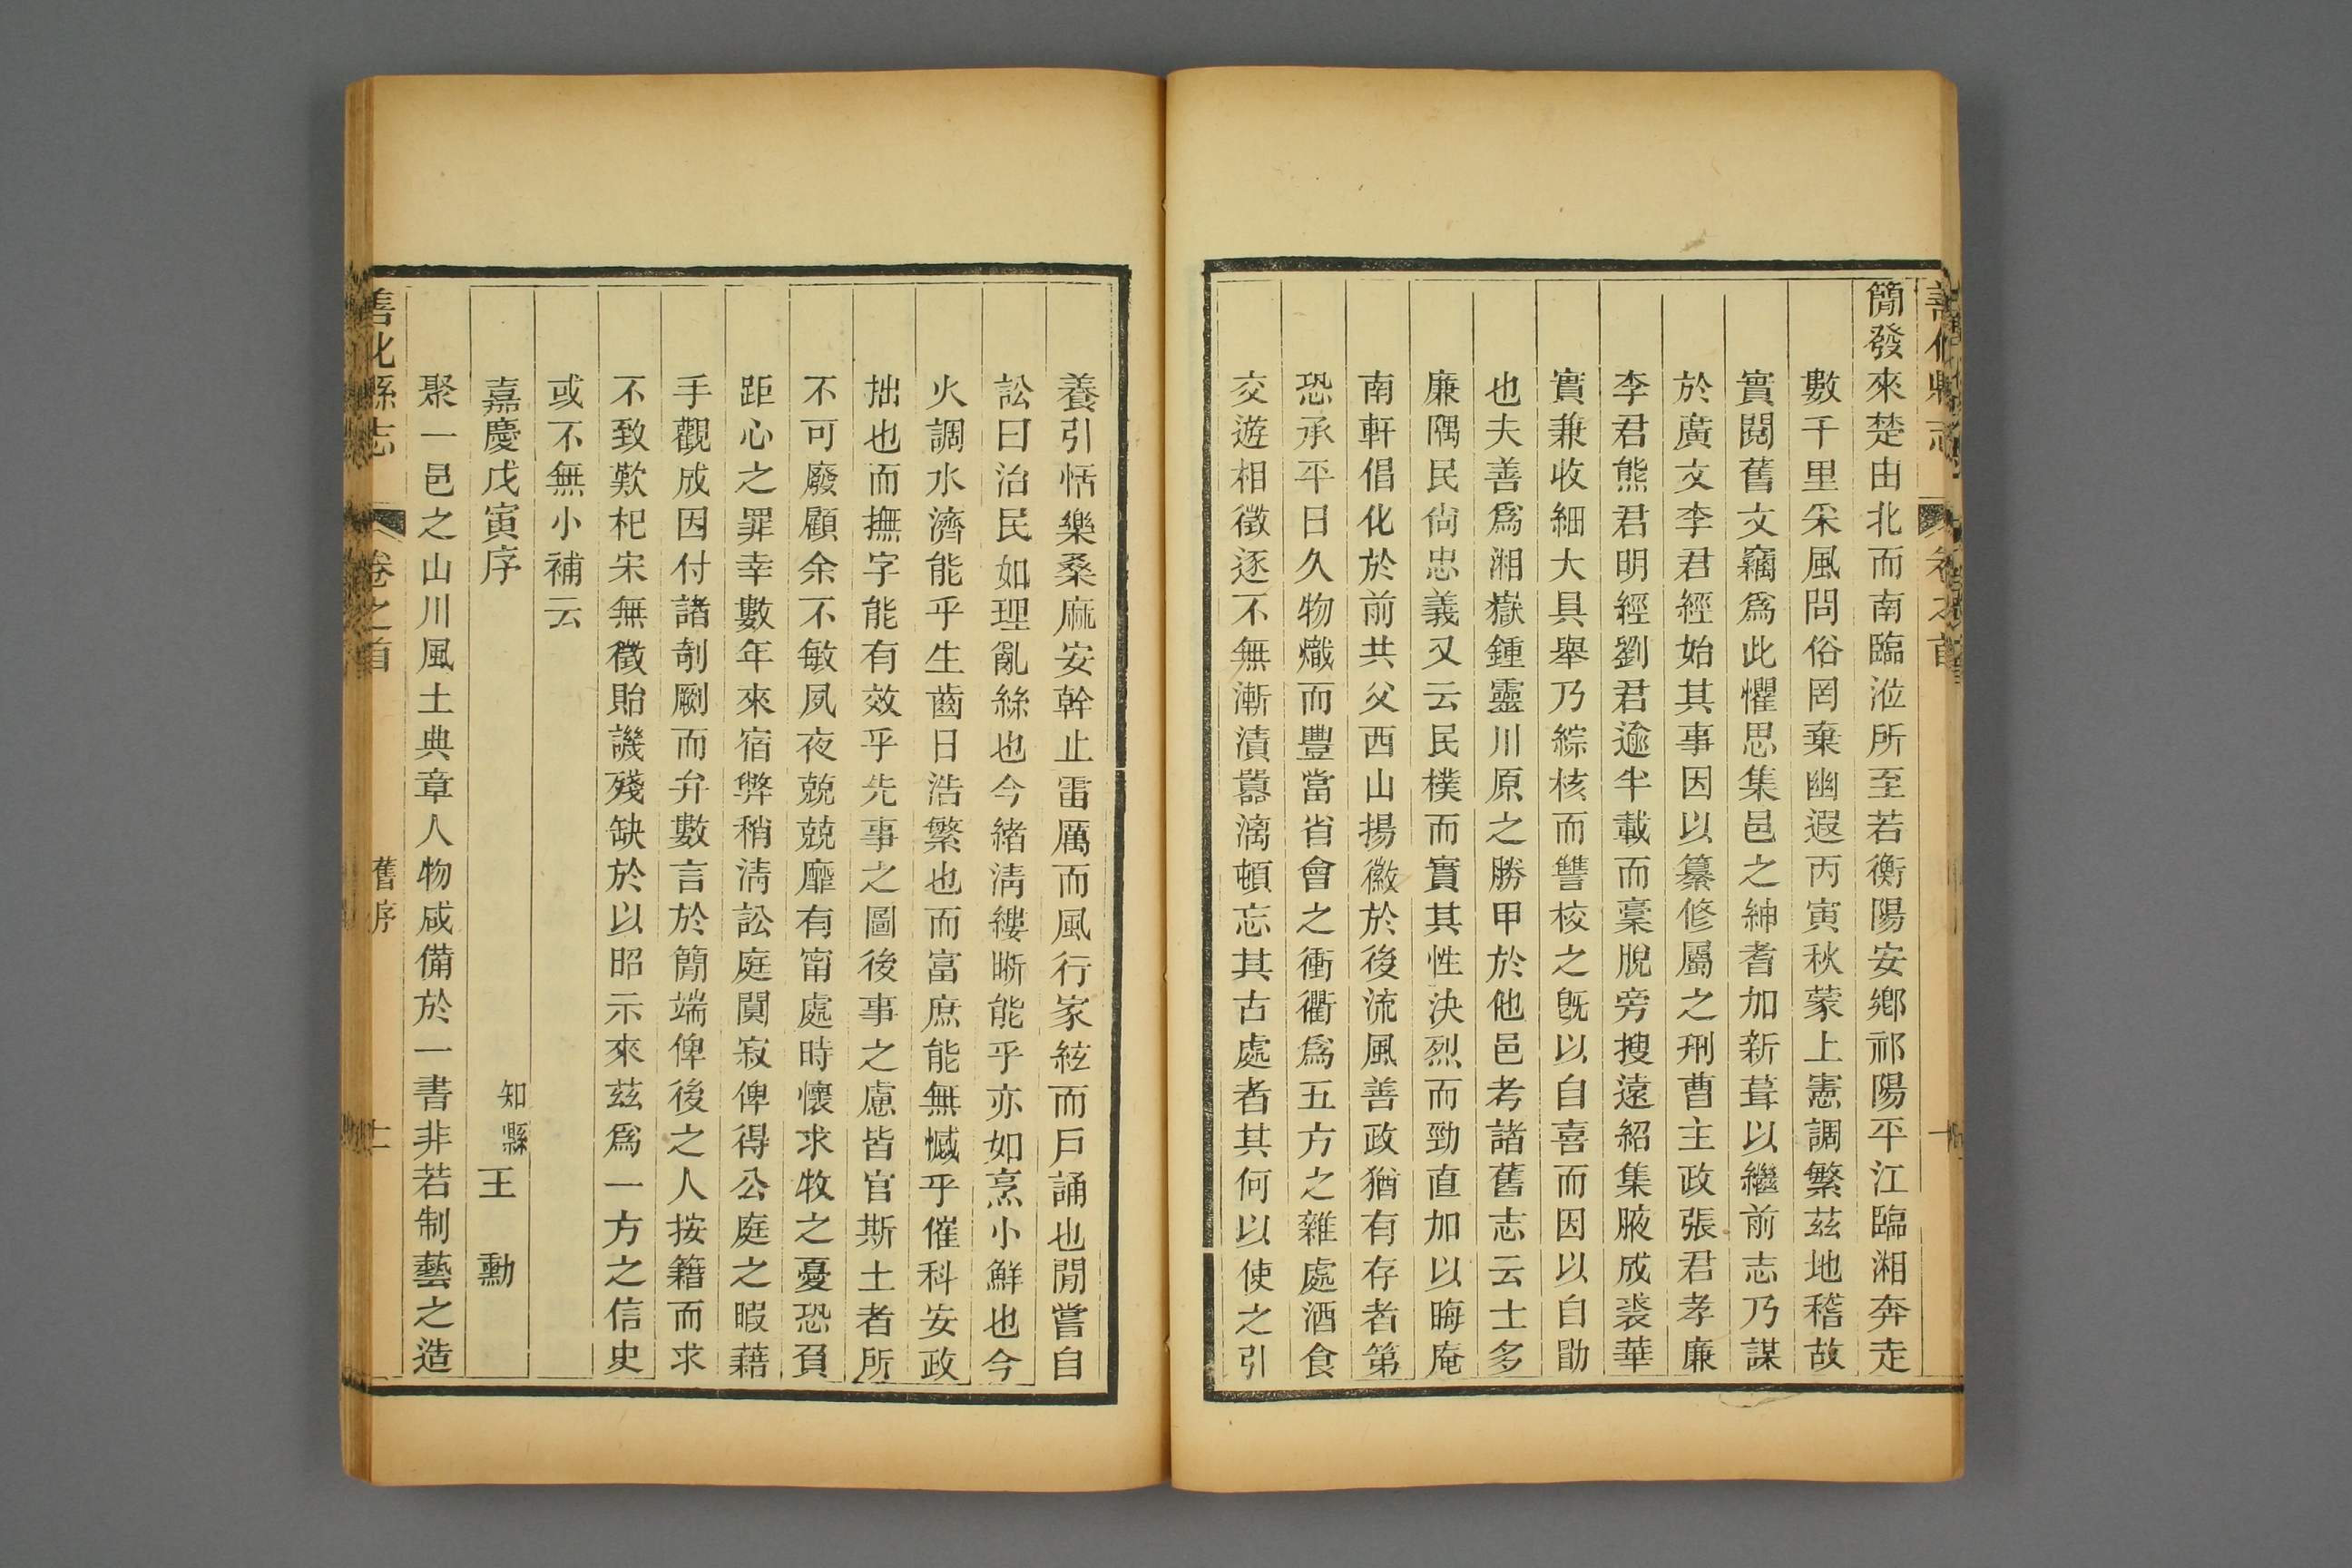 善化縣志
卷之首
簡發來楚由北而南臨涖所至若衡陽安鄉祁陽平江臨湘奔走
數千里采風問俗罔棄幽遐丙寅秋蒙上憲調繁茲地稽故
實閱舊文竊爲此懼思集邑之紳耆加新葺以繼前志乃謀
於廣文李君經始其事因以纂修屬之刑曹主政張君孝廉
李君熊君明經劉君逾半載而稾脫旁搜遠紹集腋成裘華
實兼收細大具舉乃綜核而讐校之旣以自喜而因以自勖
也夫善爲湘嶽鍾靈川原之勝甲於他邑考諸舊志云士多
廉隅民尙忠義又云民樸而實其性決烈而勁直加以晦庵
南軒倡化於前共父西山揚徽於後流風善政猶有存者第
恐承平日久物熾而豐當省會之衝衢爲五方之雜處酒食
交遊相徵逐不無漸漬囂漓頓忘其古處者其何以使之引
養引恬樂桑麻安幹止雷厲而風行家絃而戶誦也閒嘗自
訟曰治民如理亂絲也今緒淸縷晰能乎亦如烹小鮮也今
火調水濟能乎生齒日浩繁也而富庶能無憾乎催科安政
拙也而撫字能有效乎先事之圖後事之慮皆官斯土者所
不可廢顧余不敏夙夜兢兢靡有甯處時懷求牧之憂恐負
距心之罪幸數年來宿弊稍淸訟庭闃寂俾得公庭之暇藉
手觀成因付諸剞劂而弁數言於簡端俾後之人按籍而求
不致歎杞宋無徵貽譏殘缺於以昭示來茲爲一方之信史
或不無小補云
嘉慶戊寅序
知縣王勳
聚一邑之山川風土典章人物咸備於一書非若制藝之造
善化縣志
卷之首
舊序